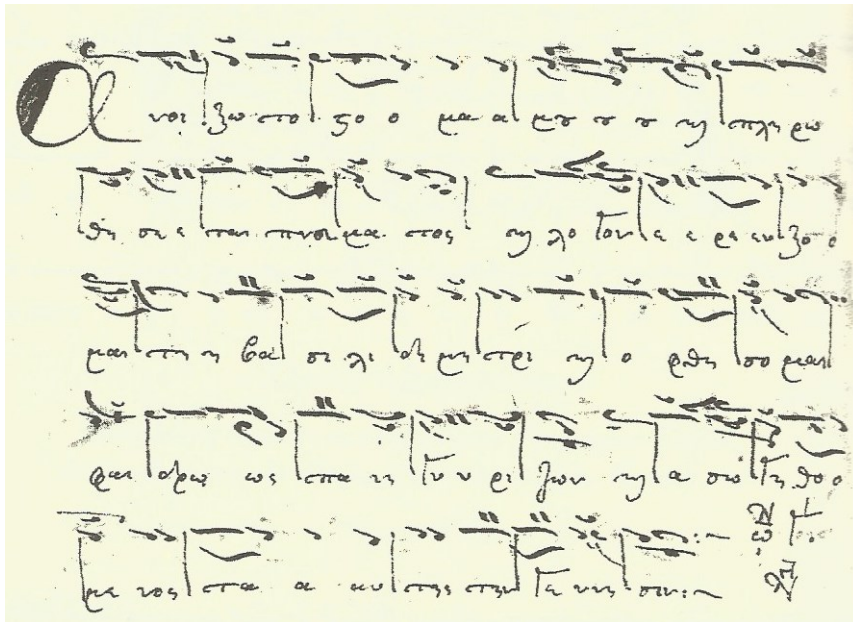 Α νοι ξω στο στο ο μα α μου ου ου και πλη ρω
θη σε ε ται πνευ μα τος και λο γον ε ε ρε ευ ξο ο
μαι τη η βα σι λι δι μη τρι και ο φθη σο μαι
φαι δρως ως πα νη γυ υ ρι ζων και α σω γη θο ο
με νος τα α αυ της την γε ννη σιν